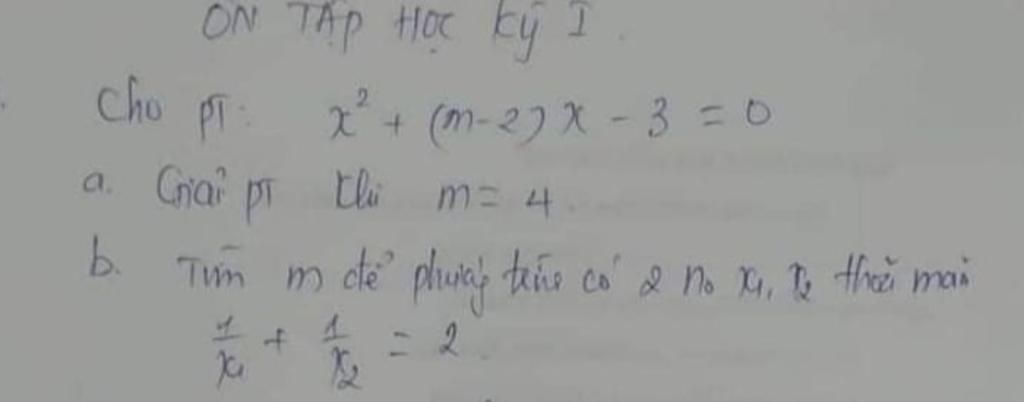 ÔN TẬP HỌC Kỳ I.
Cho pT: x² + (m-2)x - 3 = 0
a. Giải pT khi m = 4
b. Tìm m để phương trình có 2 n₀ x₁, x₂ thoả mãn
1/x₁ + 1/x₂ = 2.